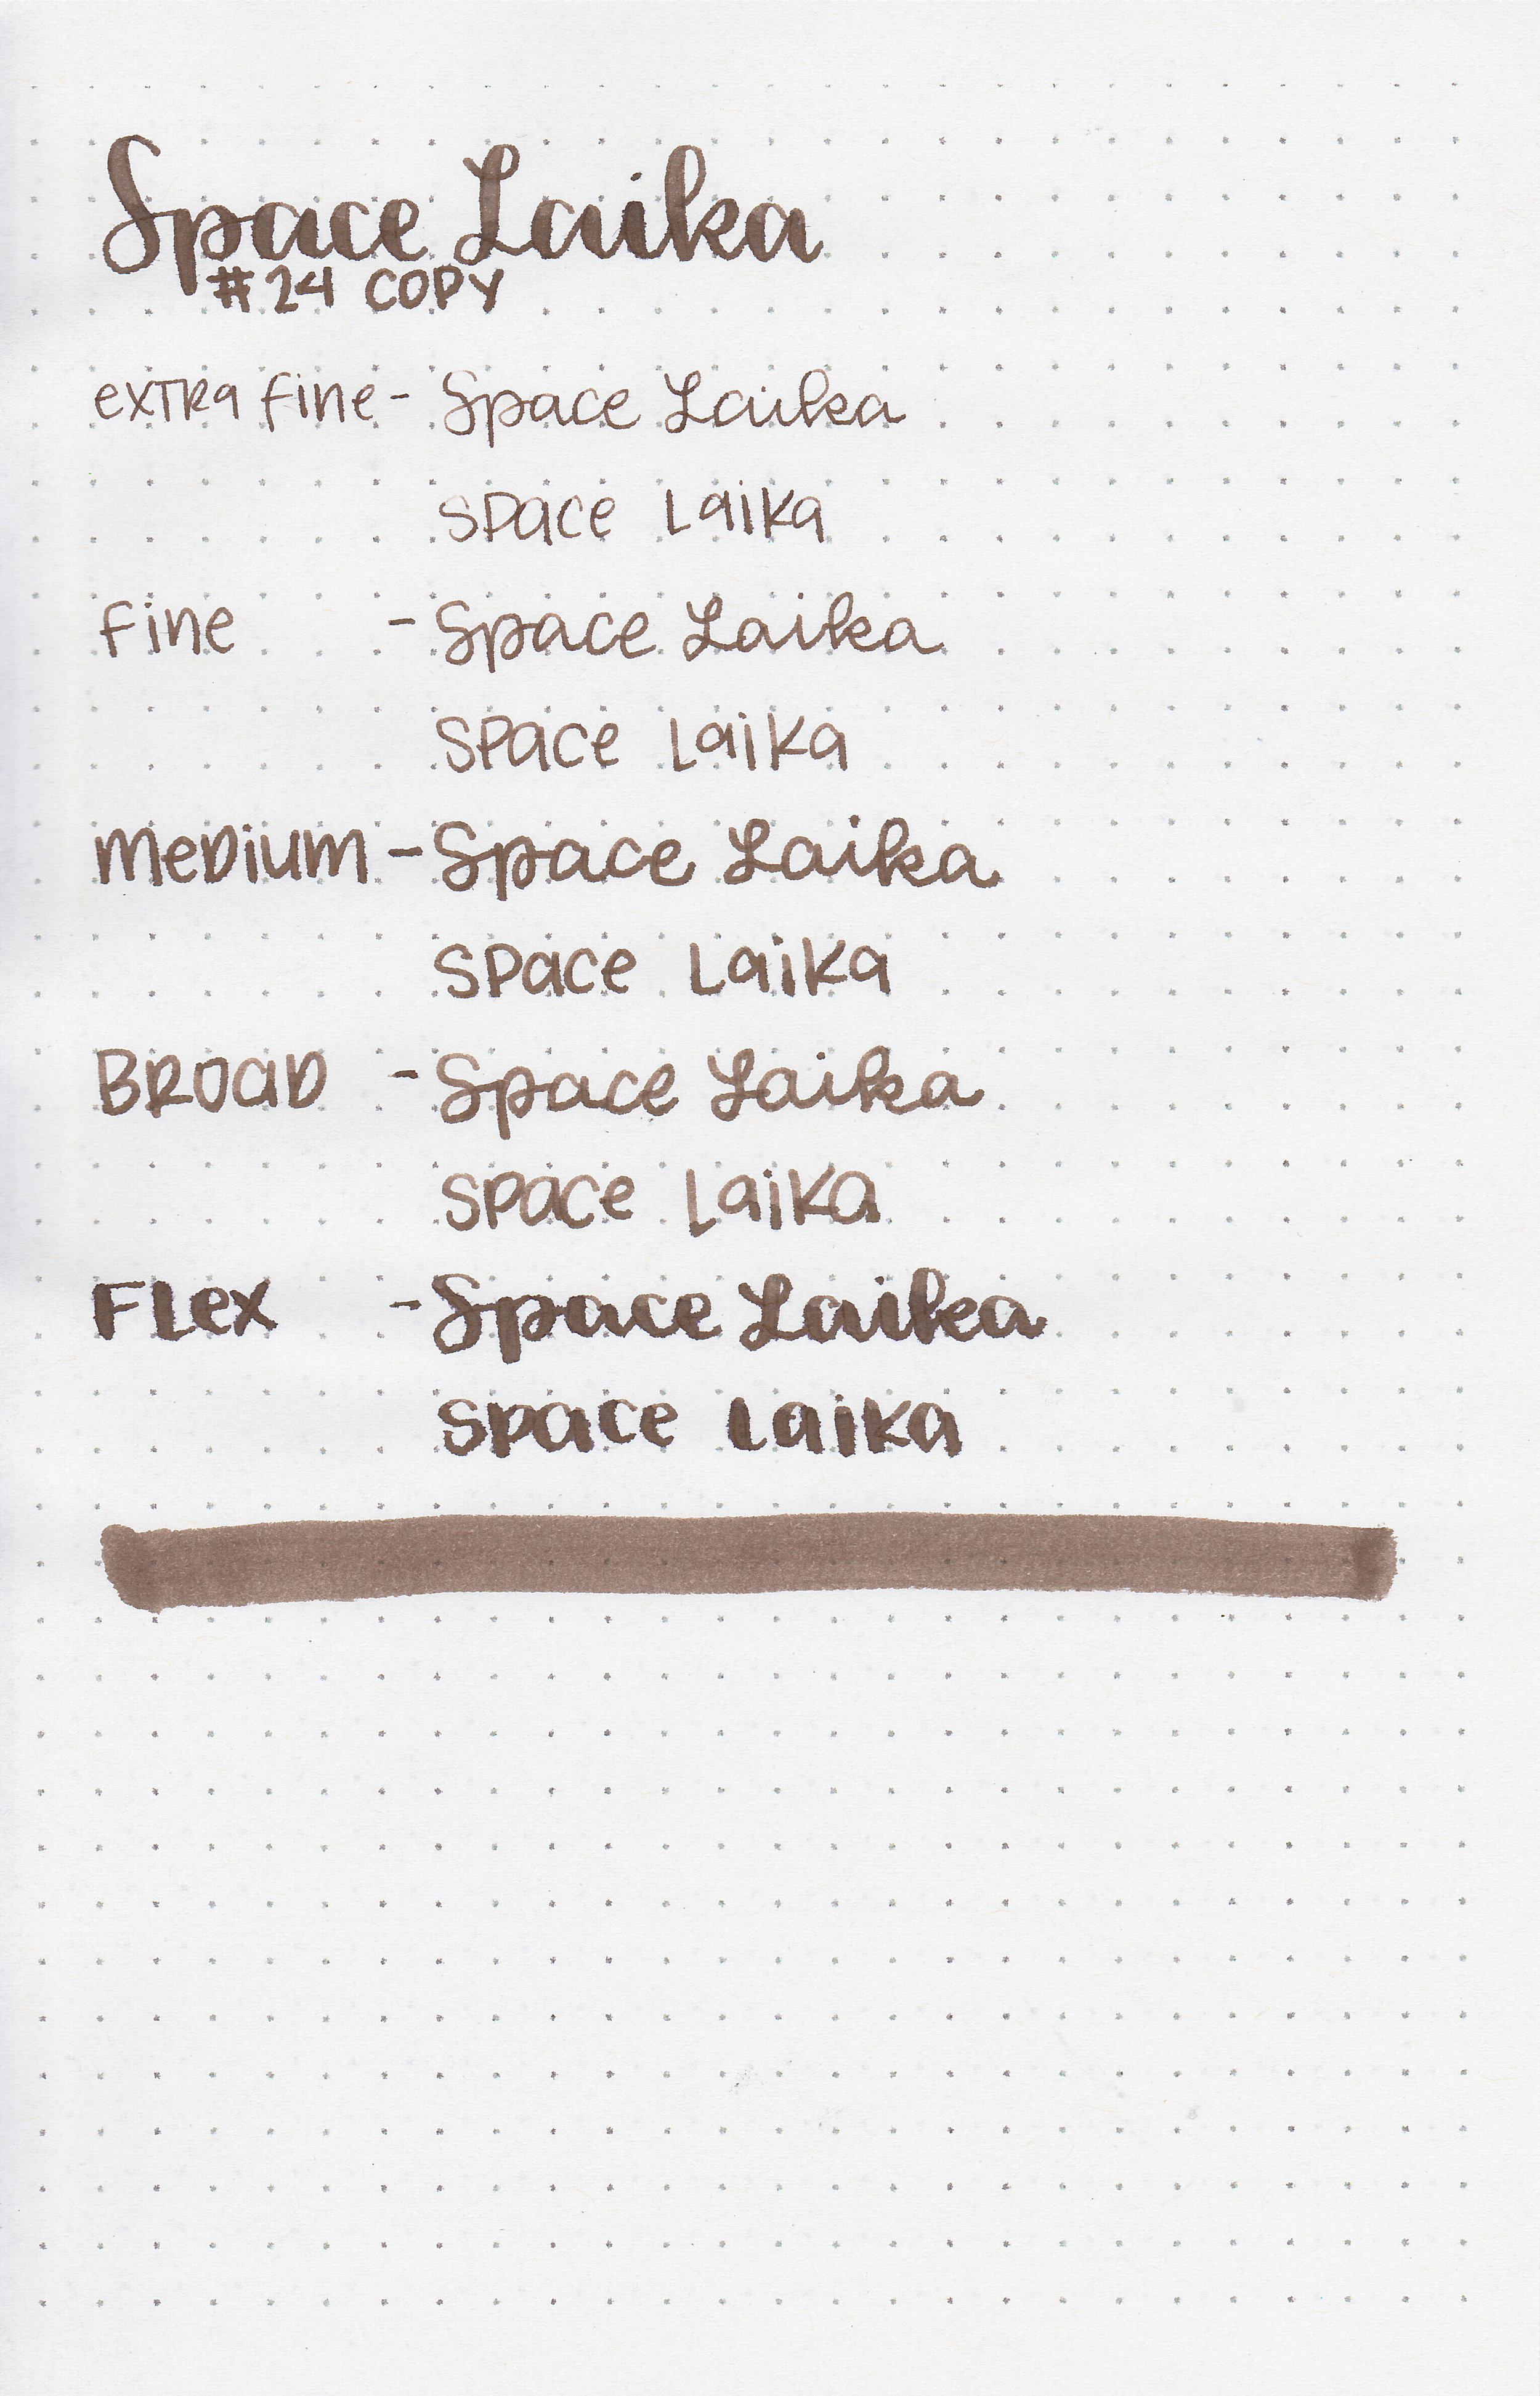 Space Laika
#24 COPY
extra fine - Space Laika
Space Laika
Fine - Space Laika
Space Laika
Medium - Space Laika
Space Laika
Broad - Space Laika
Space Laika
Flex - Space Laika
Space Laika